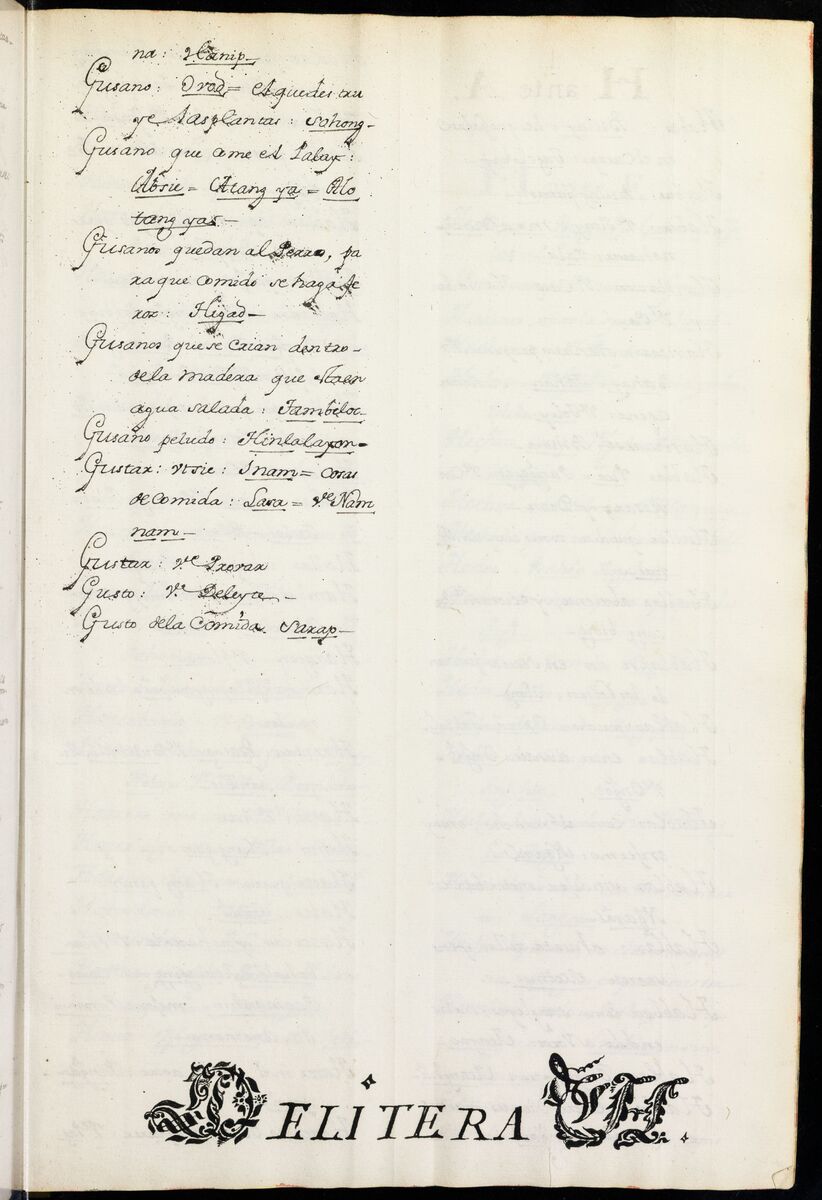 na: Hanip-
Gusano: Orod= el quedes tru
ye las plantas: Sohong-
Gusano que come el Palay:
Absie = Atang ya = Alo
tang yas-
Gusanos quedan al Perro, pa
ra que comido se haga fe
roz: Higad-
Gusanos que se crian dentro-
dela madera que sta en
agua salada: Tambeloc-
Gusano peludo: Hinlalayon=
Gustar: vtsie: Inam= cosas
de comida: Lasa = Ve Nam
nam-
Gustar: Ve Provar
Gusto: Ve Deleyte-
Gusto dela Comida. Sarap-
DELITERA H